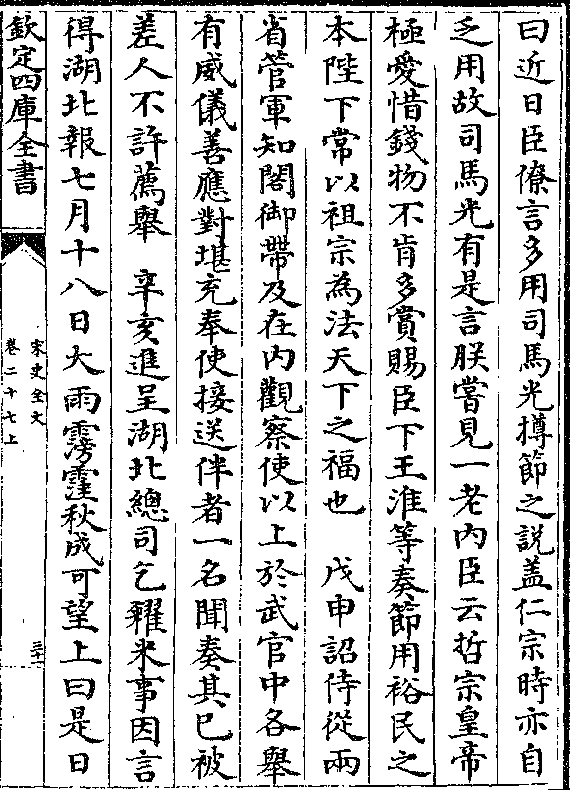 曰近日臣僚言多用司馬光撙節之說盖仁宗時亦自
乏用故司馬光有是言朕嘗見一老内臣云哲宗皇帝
極愛惜錢物不肯多賞賜臣下王淮等奏節用裕民之
本陛下常以祖宗為法天下之福也　戊申詔侍從兩
省管軍知閤御帶及在内觀察使以上於武官中各舉
有威儀善應對堪充奉使接送伴者一名聞奏其已被
差人不許薦舉　辛亥進呈湖北總司乞糴米事因言
得湖北報七月十八日大雨霶霔秋成可望上曰是日
欽定四庫全書
宋史全文
卷二十七上
三十